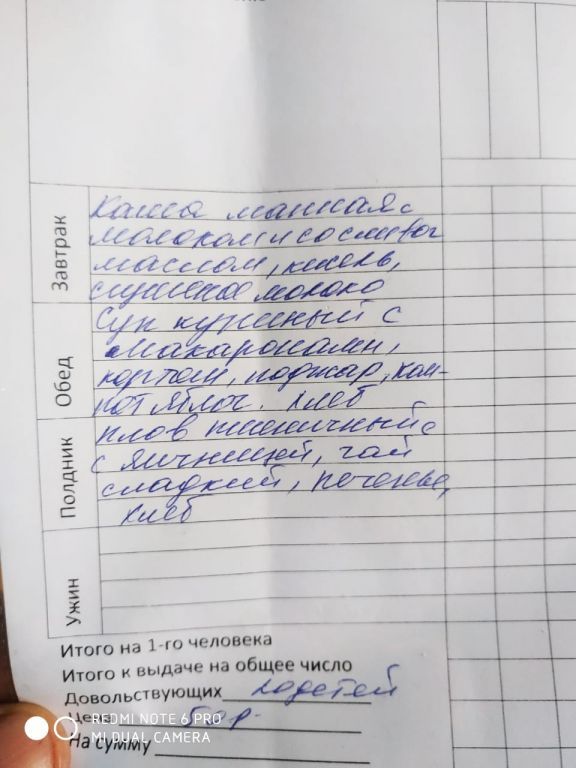 Завтрак
Каша манная с
молоком и со слив
маслом, кисель,
сгущеное молоко
Обед
Суп куриный с
макаронами,
картош, поджар, ком-
пот яблоч. хлеб
Полдник
плов пшеничный с
с яичницей, чай
сладкий, печенье,
хлеб
Ужин
Итого на 1-го человека
Итого к выдаче на общее число
Довольствующих детей
На сумму
REDMI NOTE 6 PRO
MI DUAL CAMERA